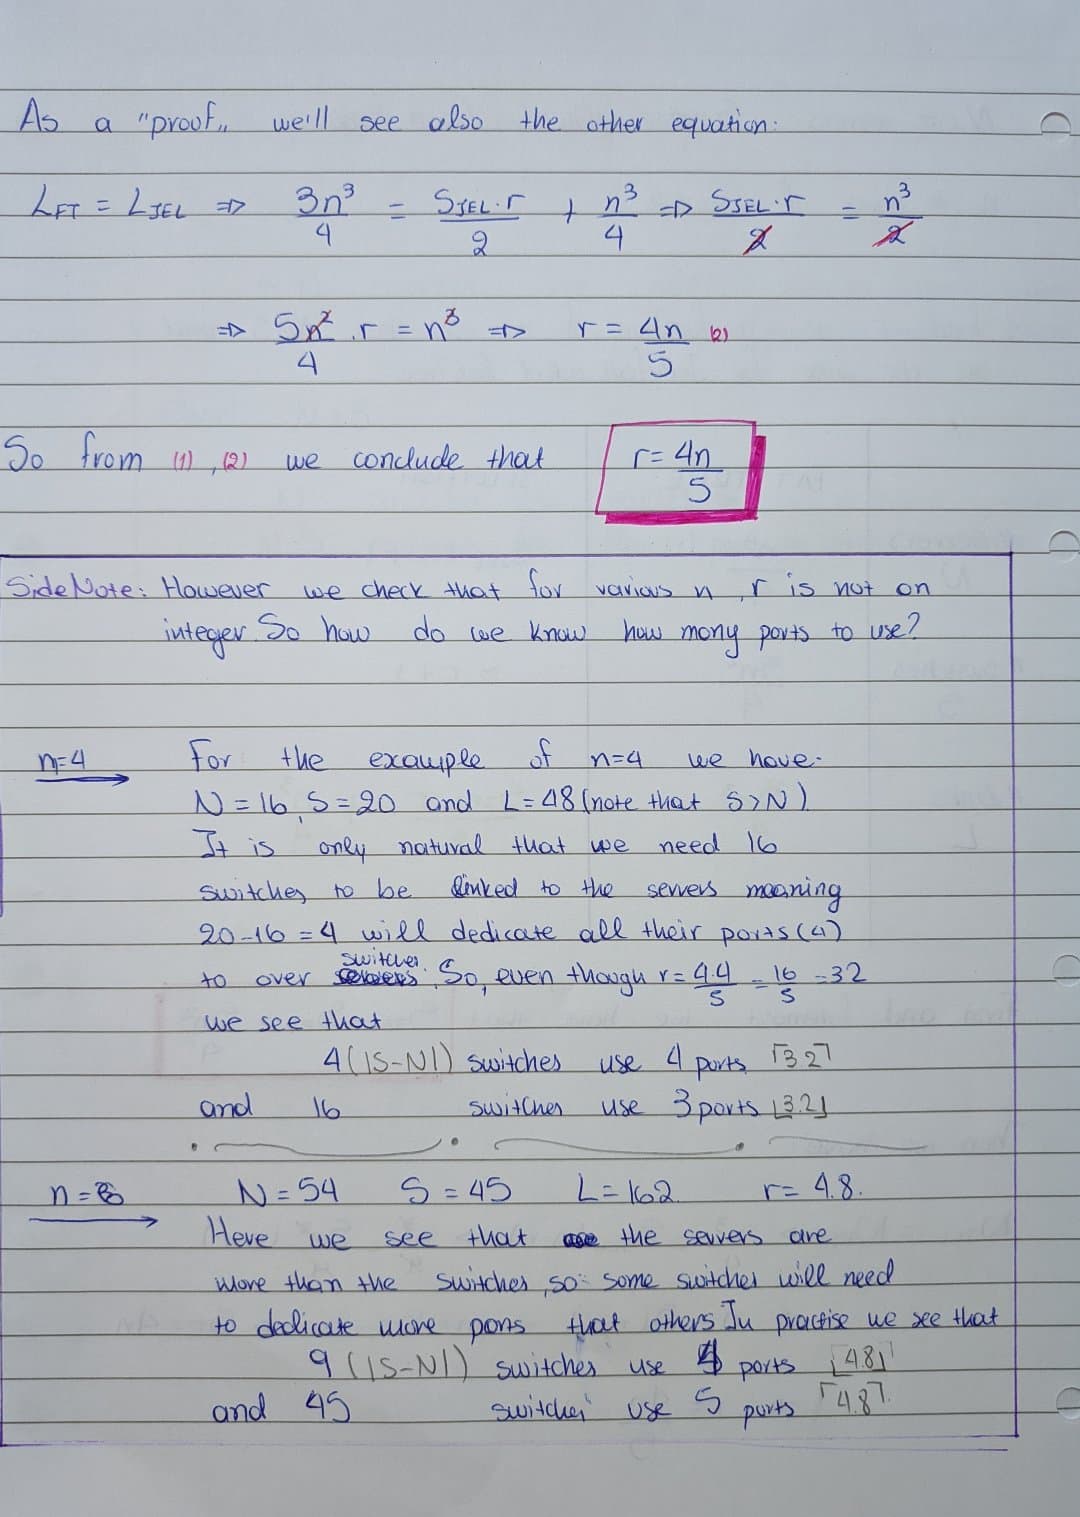 As a "proof„ we'll see also the other equation:
L_FT = L_JEL => 3n³/4 = S_JEL·r/2 + n³/4 => S_JEL·r/2 = n³/2
=> 5n²/4 · r = n³ => r = 4n/5 (2)
So from (1), (2) we conclude that r = 4n/5
Side Note: However we check that for various n, r is not on
integer. So how do we know how mony ports to use?
n=4 For the example of n=4 we have.
N = 16, S = 20 and L = 48 (note that S>N)
It is only natural that we need 16
switches to be linked to the servers meaning
20-16 = 4 will dedicate all their ports (4)
to over switches. So, even though r = 4·4/5 = 16/5 = 32
we see that
4 (|S-N|) switches use 4 ports ⌈3.2⌉
and 16 switches use 3 ports ⌊3.2⌋
n=6 N = 54 S = 45 L = 162. r = 4.8.
Here we see that the servers are
more than the switches, so: some switches will need
to dedicate more pons that others In practise we see that
9 (|S-N|) switches use 4 ports ⌊4.8⌋
and 45 switches use 5 ports ⌈4.8⌉.